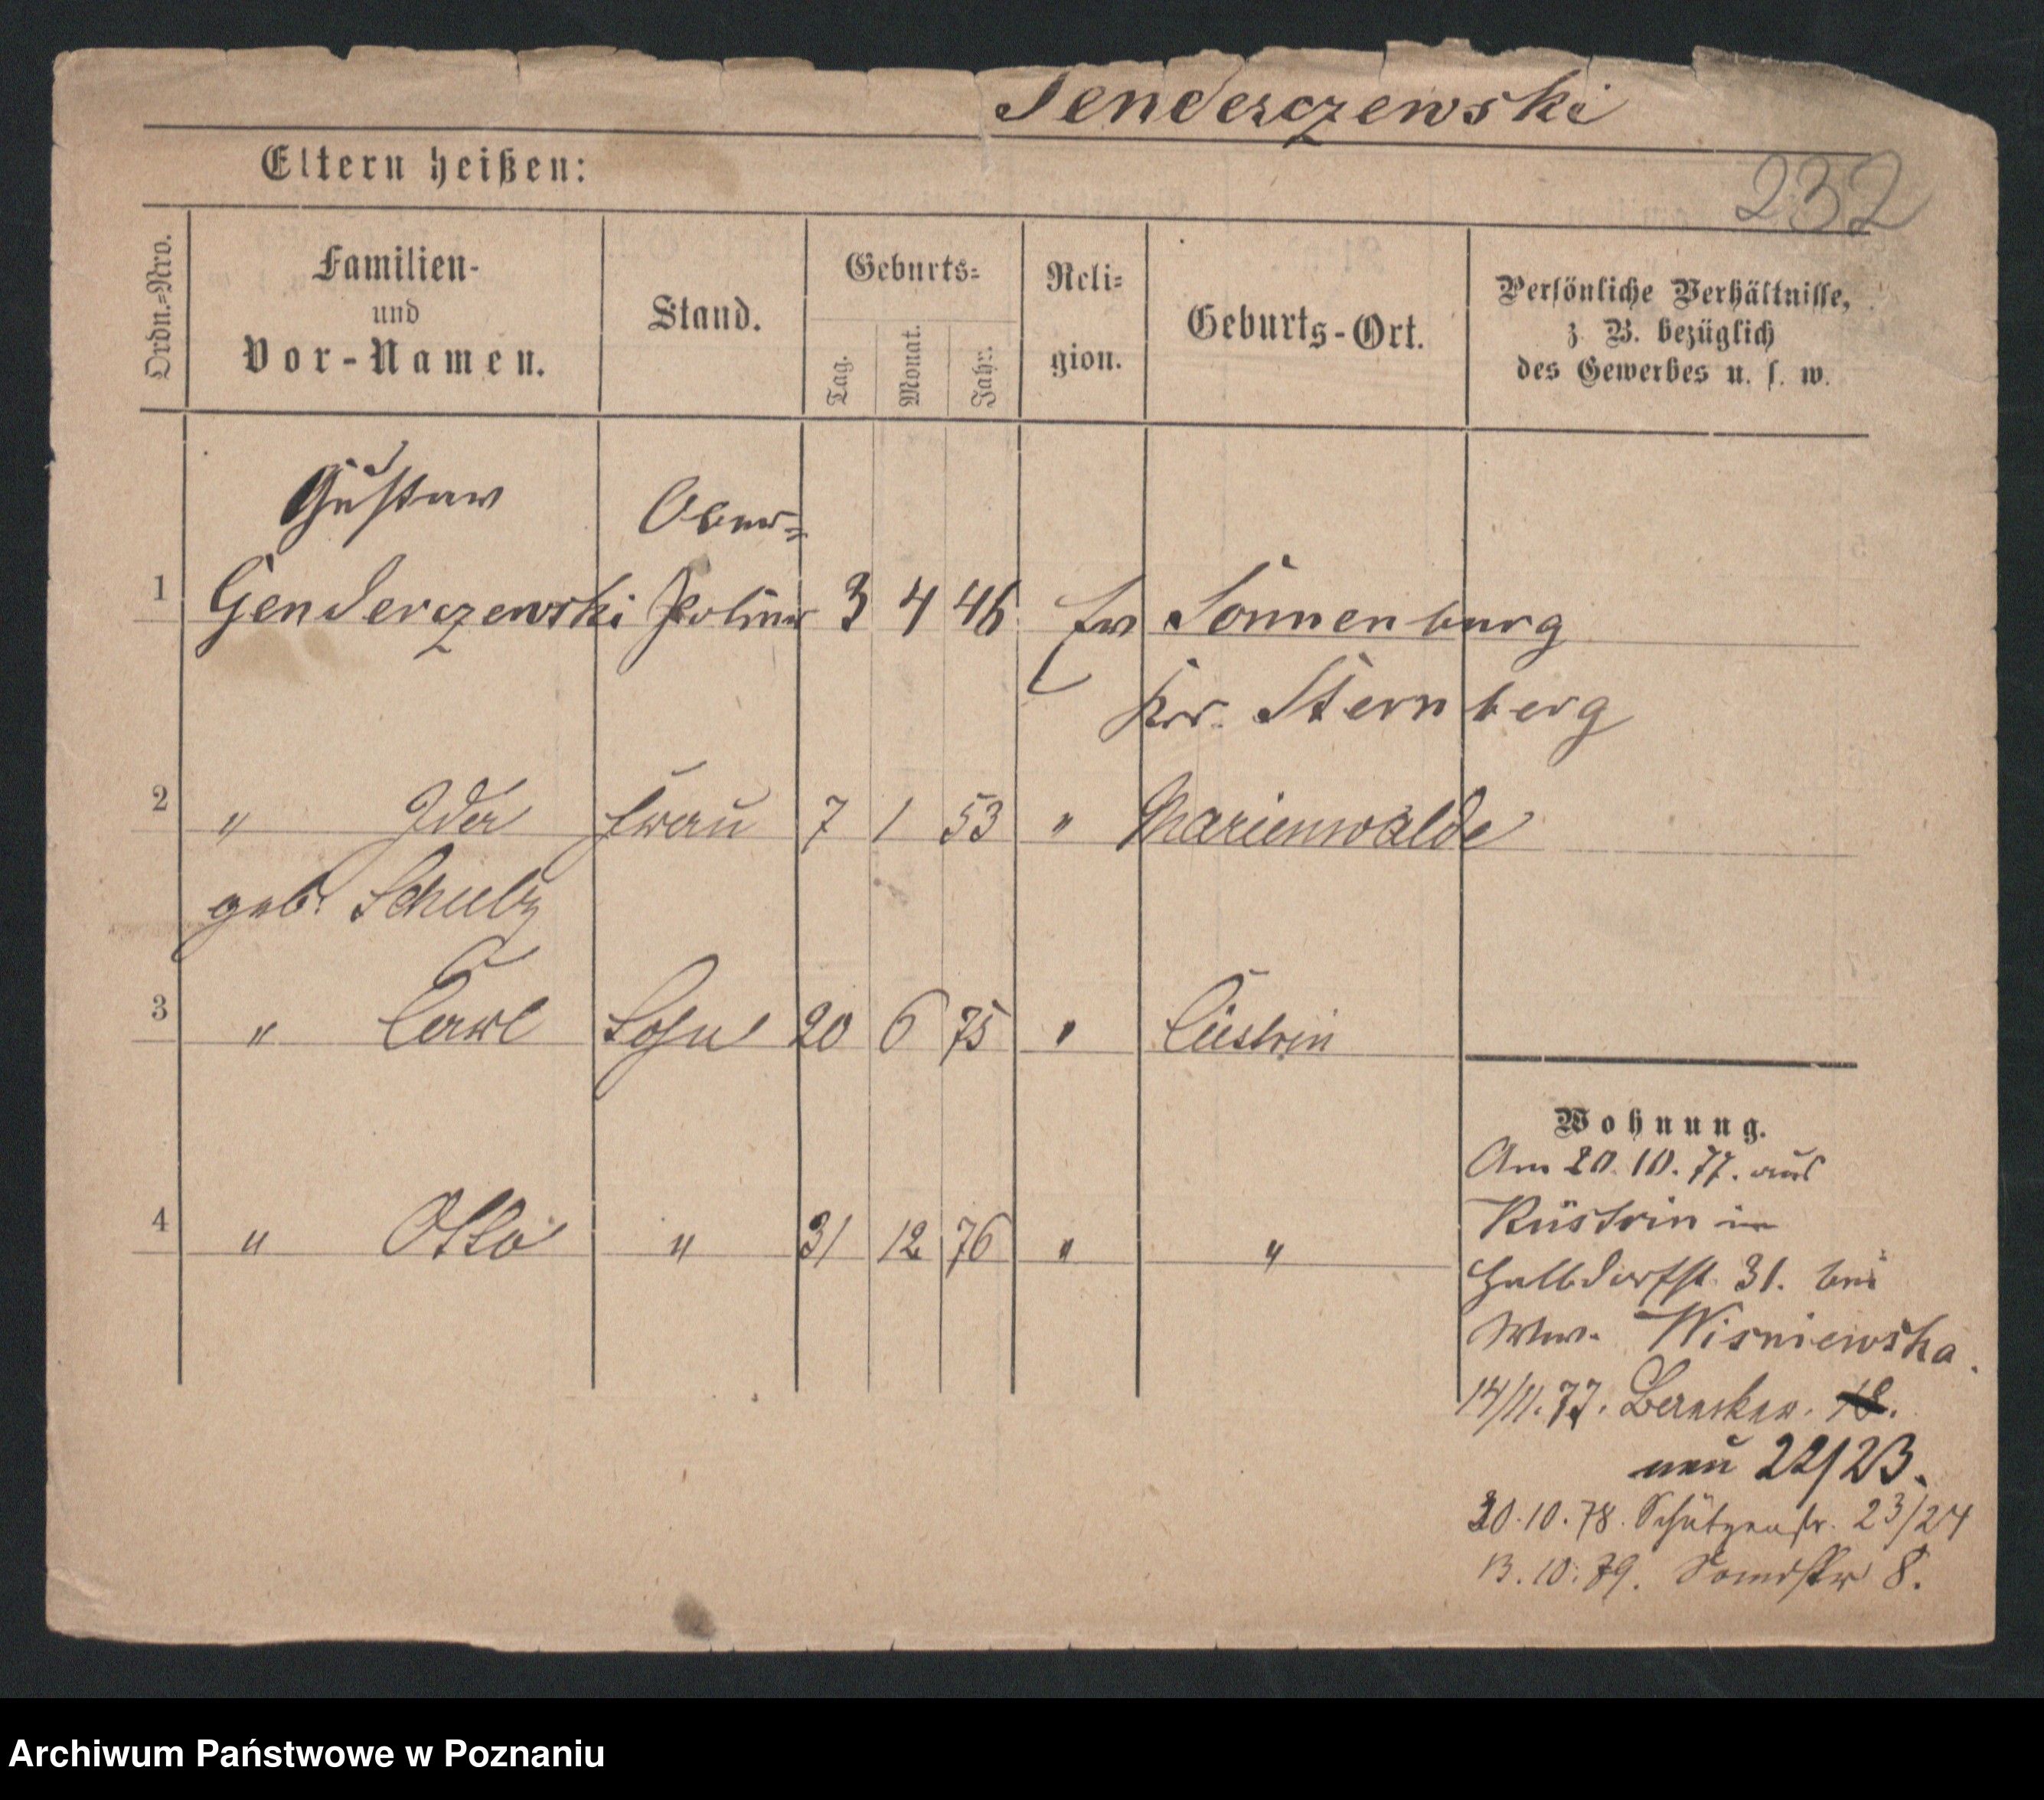 Genderczewski
232
Eltern heißen:
Ordn.=Nro.
Familien-
und
Vor-Namen.
Stand.
Geburts=
Tag.
Monat.
Jahr.
Reli=
gion.
Geburts-Ort.
Persönliche Verhältnisse,
z. B. bezüglich
des Gewerbes u. s. w.
Gustav Ober=
1 Genderczewski 3 4 46 ev Sonnenburg
Kr. Sternberg
2 " Ida Frau 7 1 53 " Marienwalde
geb. Schulz
3 " Carl Sohn 20 6 75 " Cüstrin
4 " Otto " 31 12 76 " "
Wohnung.
Am 20.10.77. aus
Küstrin in
Halbdorfst. 31. bei
Ww. Wisniewska.
14/11.77. 18.
neu 22/23.
20.10.78. Schützenstr. 23/24
13.10.79. 8.
Archiwum Państwowe w Poznaniu